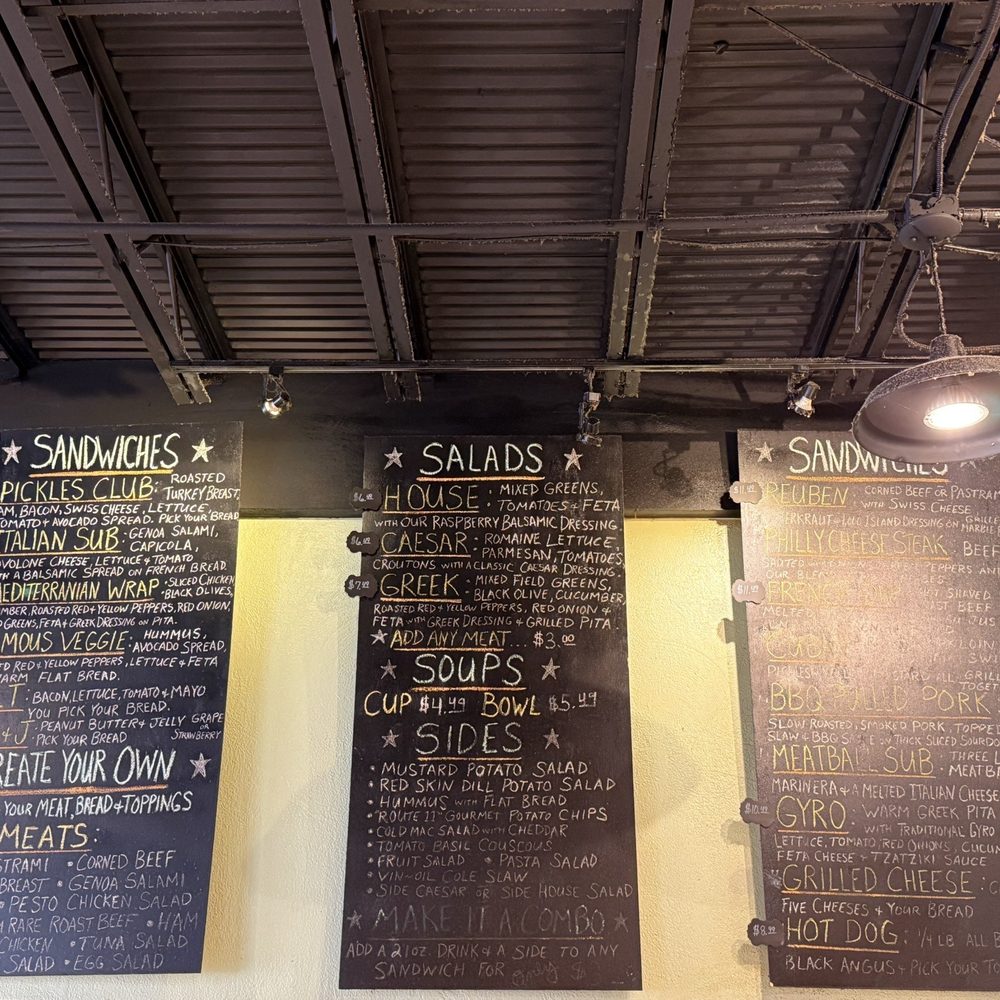 SANDWICHES
PICKLES CLUB: ROASTED
TURKEY BREAST,
AM, BACON, SWISS CHEESE, LETTUCE,
TOMATO & AVOCADO SPREAD. PICK YOUR BREAD
ITALIAN SUB: GENOA SALAMI,
CAPICOLA,
VOLONE CHEESE, LETTUCE & TOMATO
A BALSAMIC SPREAD ON FRENCH BREAD
EDITERRANIAN WRAP: SLICED CHICKEN
BLACK OLIVES,
MBER, ROASTED RED & YELLOW PEPPERS, RED ONION,
GREENS, FETA & GREEK DRESSING ON PITA.
MOUS VEGGIE: HUMMUS,
AVOCADO SPREAD,
RED & YELLOW PEPPERS, LETTUCE & FETA
ARM FLAT BREAD.
T: BACON, LETTUCE, TOMATO & MAYO
YOU PICK YOUR BREAD.
& J: PEANUT BUTTER & JELLY GRAPE
OR
PICK YOUR BREAD STRAWBERRY
REATE YOUR OWN
YOUR MEAT, BREAD & TOPPINGS
MEATS:
STRAMI • CORNED BEEF
BREAST • GENOA SALAMI
PESTO CHICKEN SALAD
RARE ROAST BEEF • HAM
CHICKEN • TUNA SALAD
SALAD • EGG SALAD
SALADS
HOUSE: MIXED GREENS,
TOMATOES & FETA
WITH OUR RASPBERRY BALSAMIC DRESSING
CAESAR: ROMAINE LETTUCE,
PARMESAN, TOMATOES,
CROUTONS WITH A CLASSIC CAESAR DRESSING
$7.99 GREEK: MIXED FIELD GREENS,
BLACK OLIVE, CUCUMBER,
ROASTED RED & YELLOW PEPPERS, RED ONION &
FETA WITH GREEK DRESSING & GRILLED PITA.
ADD ANY MEAT... $3.00
SOUPS
CUP $4.49 BOWL $5.49
SIDES
• MUSTARD POTATO SALAD
• RED SKIN DILL POTATO SALAD
• HUMMUS WITH FLAT BREAD
• "ROUTE 11" GOURMET POTATO CHIPS
• COLD MAC SALAD WITH CHEDDAR
• TOMATO BASIL COUSCOUS
• FRUIT SALAD • PASTA SALAD
• VIN-OIL COLE SLAW
• SIDE CAESAR OR SIDE HOUSE SALAD
MAKE IT A COMBO
ADD A 21OZ. DRINK & A SIDE TO ANY
SANDWICH FOR
SANDWICHES
REUBEN: CORNED BEEF OR PASTRAM
WITH SWISS CHEESE
DRESSING ON
PHILLY CHEESE STEAK: BEEF
PEPPERS AND
SHAVED
ST BEEF
BBQ PORK
SLOW ROASTED, SMOKED PORK, TOPPE
SLAW & BBQ ON THICK SLICED SOURDO
MEATBALL SUB: THREE L
MEATBA
MARINERA & A MELTED ITALIAN CHEESE
GYRO: WARM GREEK PITA
WITH TRADITIONAL GYRO
LETTUCE, TOMATO, RED ONIONS, CUCUM
FETA CHEESE & TZATZIKI SAUCE
GRILLED CHEESE:
FIVE CHEESES & YOUR BREAD
$8.99 HOT DOG: 1/4 LB ALL B
BLACK ANGUS & PICK YOUR TO